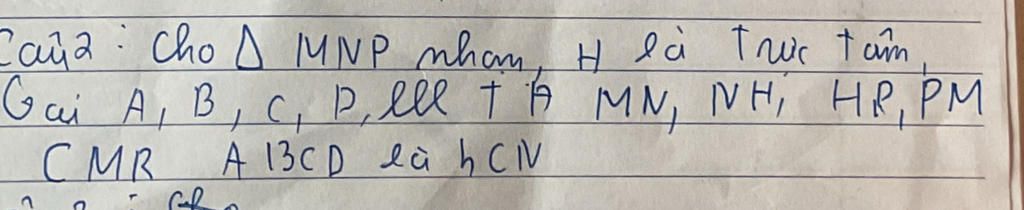 Câu 2 : Cho Δ MNP nhọn, H là trực tâm,
Gọi A, B, C, D, lll TĐ MN, NH, HP, PM
CMR ABCD là hCN